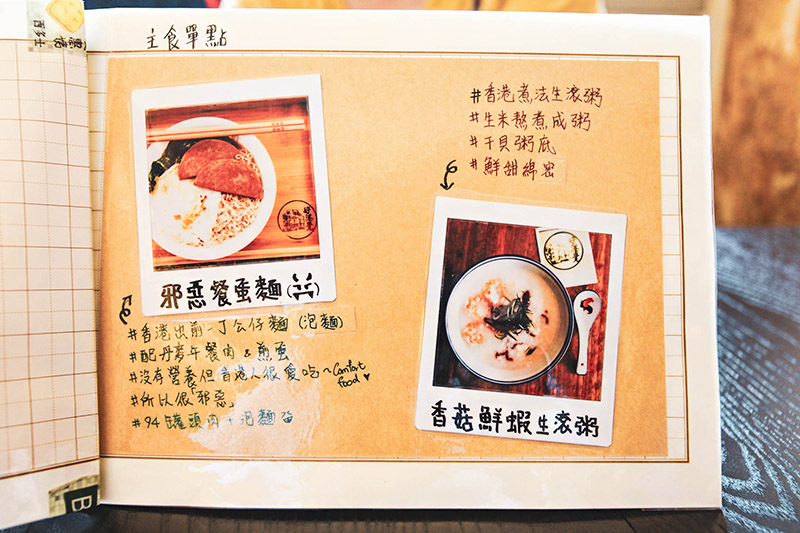 主食單點
邪惡餐蛋麵
#香港出前一丁公仔麵(泡麵)
#配丹麥午餐肉&煎蛋
#沒有營養但香港人很愛吃~Comfort food♥
#所以很「邪惡」
#94罐頭肉+泡麵
#香港煮法生滾粥
#生米熬煮成粥
#干貝粥底
#鮮甜綿密
香菇鮮蝦生滾粥
B